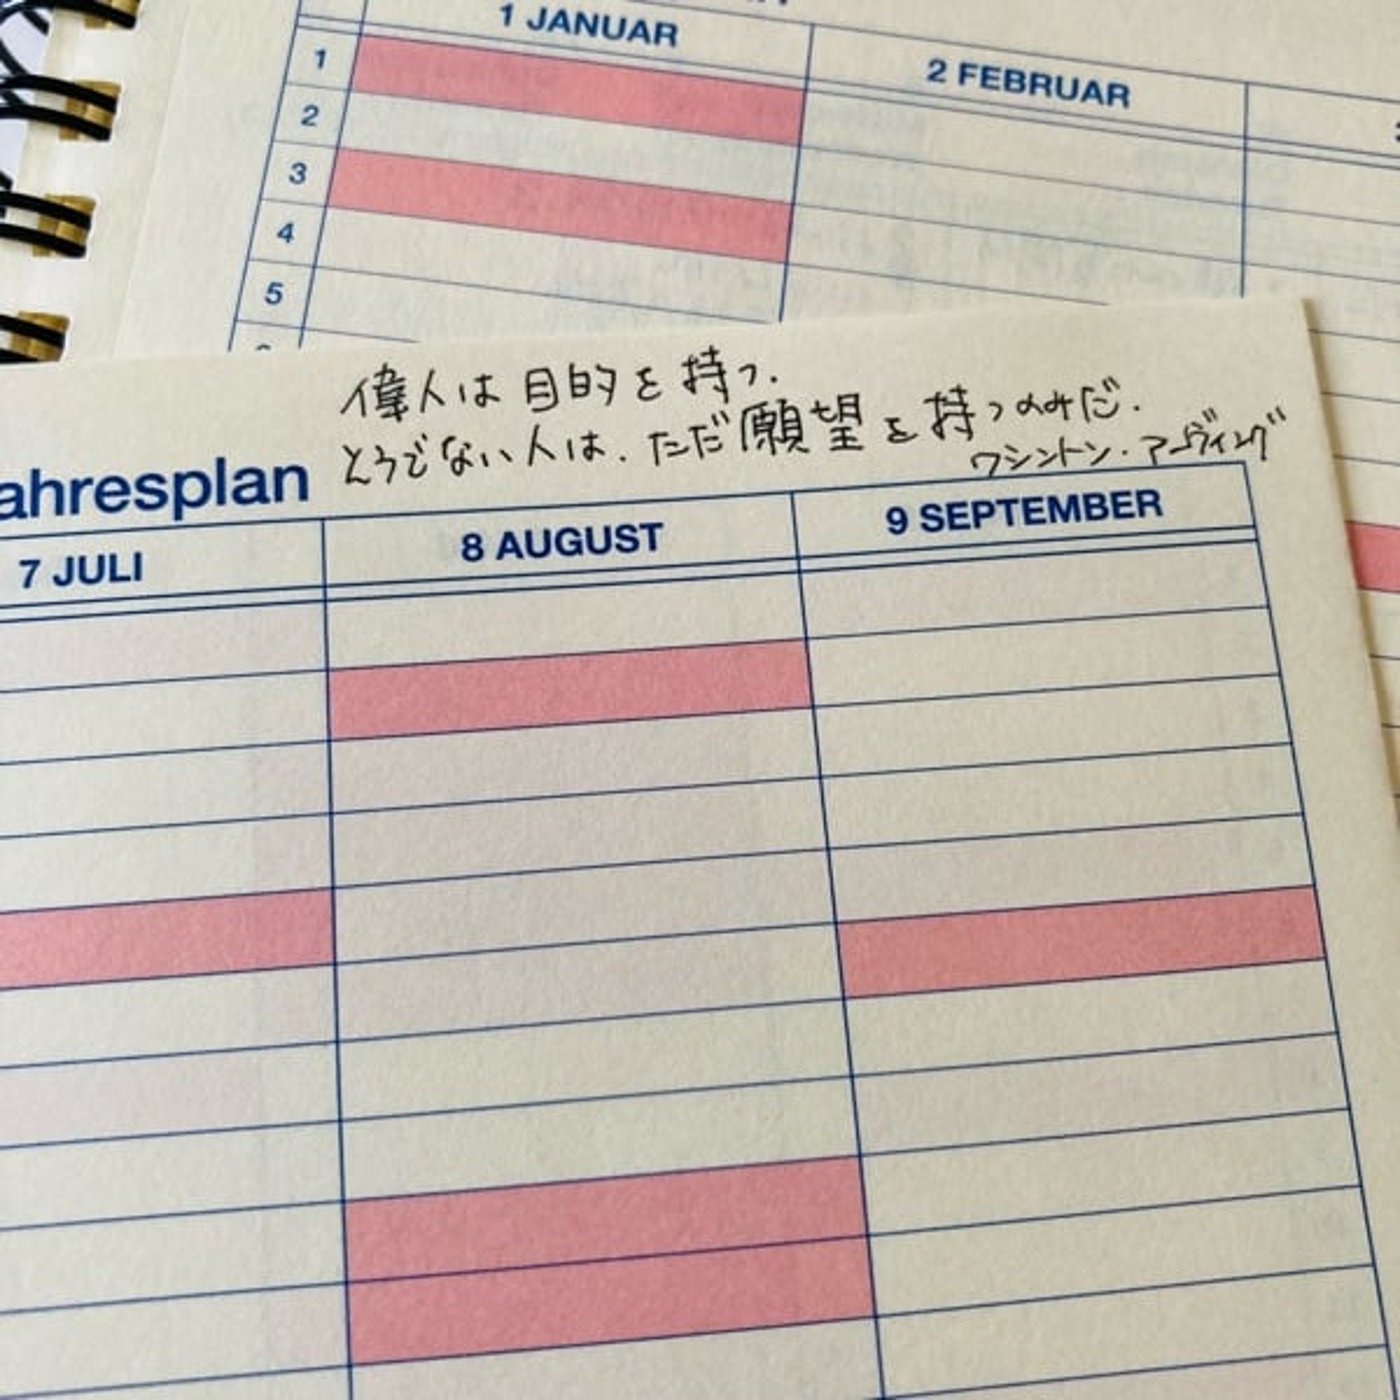 1 JANUAR
2 FEBRUAR
1
2
3
4
5
偉人は目的を持つ.
そうでない人は.ただ願望を持つのみだ.
ワシントン・アーヴィング
ahresplan
7 JULI
8 AUGUST
9 SEPTEMBER